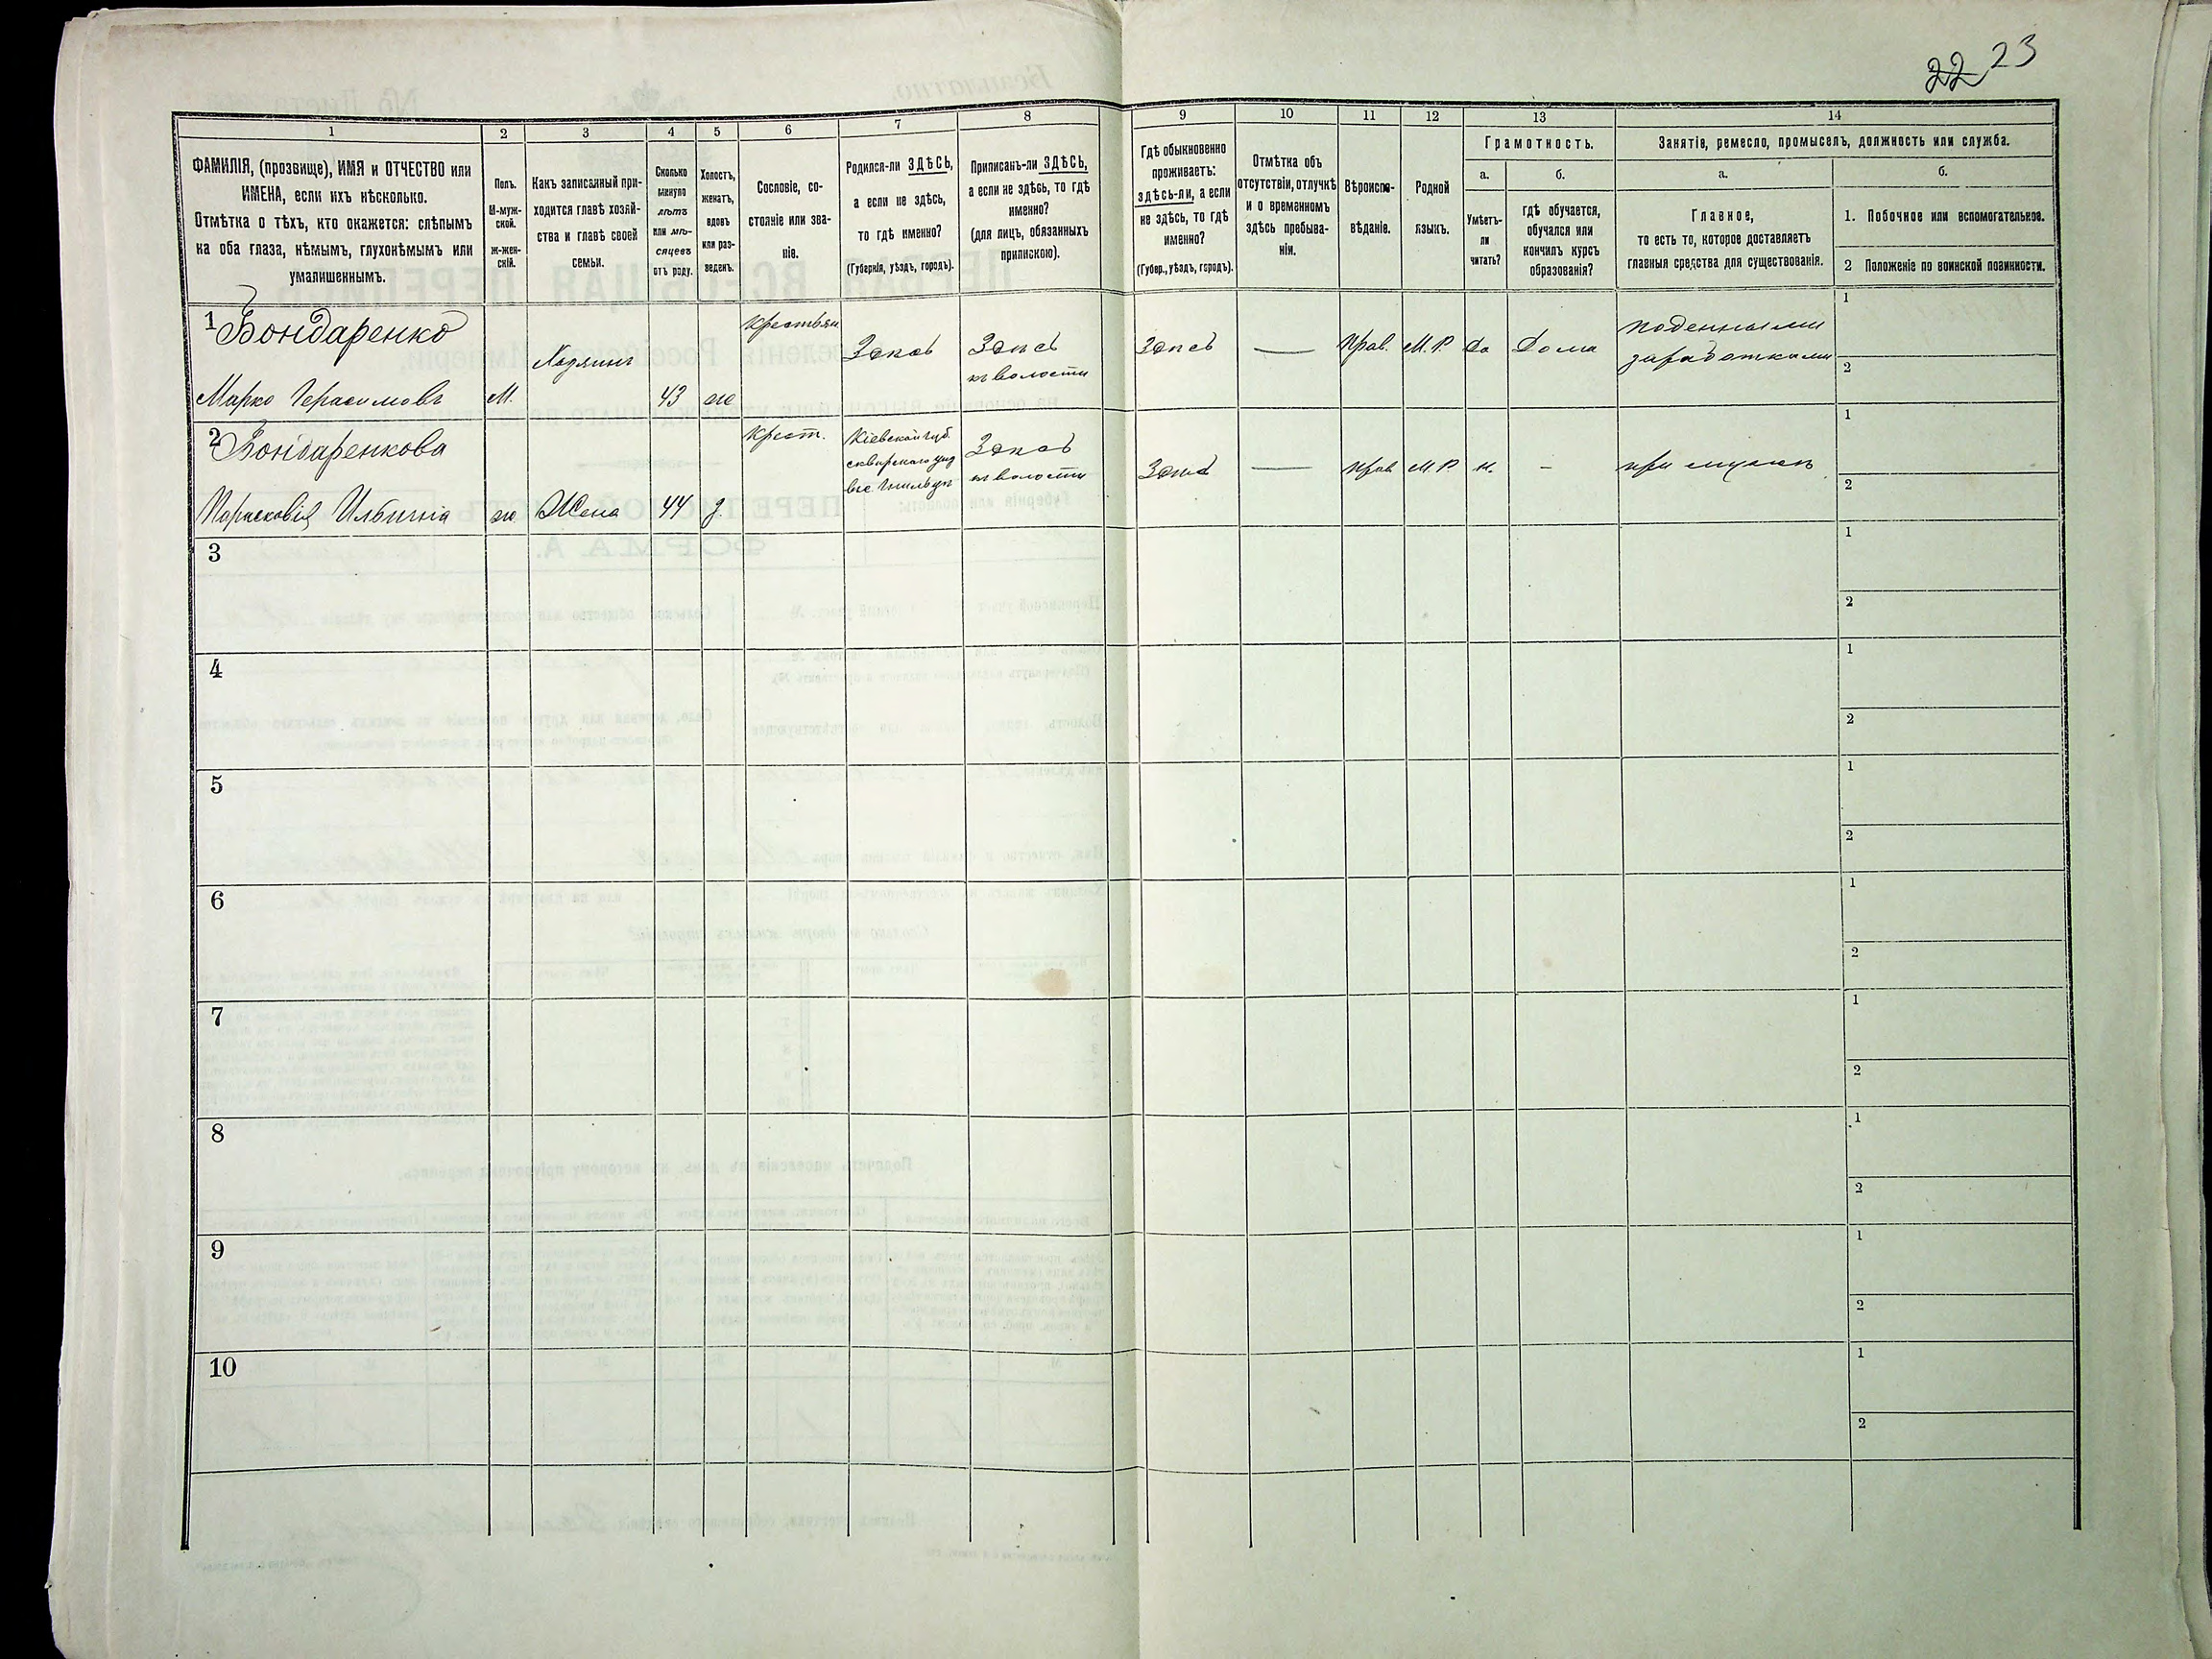 22 23
1
2
3
4
5
6
7
8
9
10
11
12
13
14
ФАМИЛІЯ, (прозвище), ИМЯ и ОТЧЕСТВО или
ИМЕНА, если ихъ нѣсколько.
Отмѣтка о тѣхъ, кто окажется: слѣпымъ
на оба глаза, нѣмымъ, глухонѣмымъ или
умалишеннымъ.
Полъ.
М-муж-
ской.
Ж-жен-
скій.
Какъ записанный при-
ходится главѣ хозяй-
ства и главѣ своей
семьи.
Сколько
минуло
лѣтъ
или мѣ-
сяцевъ
отъ роду.
Холостъ,
женатъ,
вдовъ
или раз-
веденъ.
Сословіе, со-
стояніе или зва-
ніе.
Родился-ли ЗДѢСЬ,
а если не здѣсь,
то гдѣ именно?
(Губернія, уѣздъ, городъ).
Приписанъ-ли ЗДѢСЬ,
а если не здѣсь, то гдѣ
именно?
(для лицъ, обязанныхъ
припискою).
Гдѣ обыкновенно
проживаетъ:
здѣсь-ли, а если
не здѣсь, то гдѣ
именно?
(Губер., уѣздъ, городъ).
Отмѣтка объ
отсутствіи, отлучкѣ
и о временномъ
здѣсь пребыва-
ніи.
Вѣроиспо-
вѣданіе.
Родной
языкъ.
Грамотность.
а.
Умѣетъ-
ли
читать?
б.
гдѣ обучается,
обучался или
кончилъ курсъ
образованія?
Занятіе, ремесло, промыселъ, должность или служба.
а.
Главное,
то есть то, которое доставляетъ
главныя средства для существованія.
б.
1. Побочное или вспомогательное.
2 Положеніе по воинской повинности.
1 Бондаренко
Марко Герасимовъ
М.
Хозяинъ
43
ж
Крестьян
Здесь
Здесь
въ волости
Здесь
—
Прав.
М.Р.
да
Дома
поденными
заработками
1
2
2 Бондаренкова
Парасковія
ж.
Жена
44
з.
Крест.
Кіевской губ.
сквирскаго уѣз
Здесь
въ волости
Здесь
—
Прав
М.Р
н.
–
при мужѣ
1
2
3
1
2
4
1
2
5
1
2
6
1
2
7
1
2
8
1
2
9
1
2
10
1
2